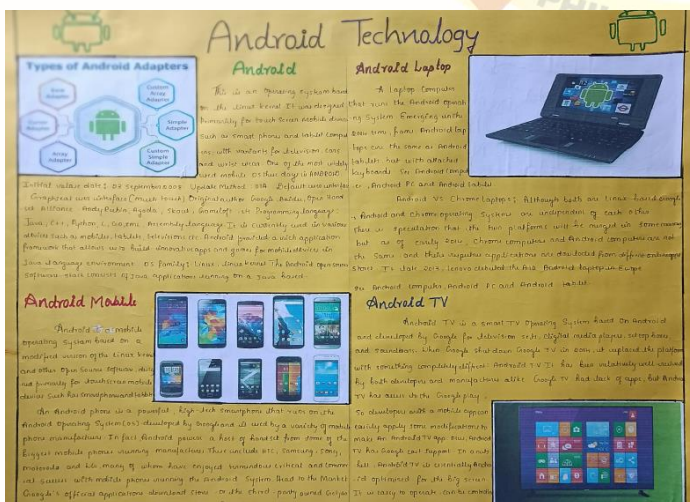 Android Technology
Types of Android Adapters
Base
Adapter
Custom
Array
Adapter
Cursor
Adapter
Simple
Adapter
Array
Adapter
Custom
Simple
Adapter
Android
This is an operating system based
on the Linux kernel. It was designed
for touch screen mobile
such as smart phone and tablet
with variants for television cars
and wrist wear. One of the most widely
used mobile OS these days is ANDROID
Initial release date: 23 September 2008 Update Method OTA Default user interface
Graphical user interface (Touch screen) Original author Google
Andy Rubin, Google Programming language:
Java, C++, Python, C, Assembly language. It is currently used in various
such as mobiles, tablets, televisions etc. Android provides a rich application
framework that allows us to build innovative apps and games for mobile devices in
Java language environment. OS family: Linux, Linux kernel The Android open source
Software consists of Java applications running on a Java based
Android Laptop
A laptop computer
that runs the Android operati
ng System. Emerging with
from Android lap
tops are the same as Android
tablets but with attached
keyboards. Android comput
er, Android PC and Android tablet
Android Vs Chrome laptops: Although both are Linux based Google
Android and Chrome operating systems are independent of each other
there is speculation that the two platforms will be merged in some
but as of early 2014, Chrome computers and Android computers are not
the same and their respective applications are downloaded from different online app
Stores. In late 2013, Lenovo debuted the first Android laptop in Europe
Android computer, Android PC and Android tablet.
Android Mobile
Android is a mobile
operating system based on a
modified version of the Linux kernel
and other open source software, desig
ned primarily for touchscreen mobile
devices such as smartphones and tablets
An Android phone is a powerful, high-tech smartphone that runs on the
Android operating system (OS) developed by Google and is used by a variety of mobile
phone manufacturers. In fact Android powers a host of handset from some of the
biggest mobile phones manufacturers. These include HTC, Samsung, Sony,
Motorola and LG, many of whom have enjoyed tremendous critical and commer
cial success with mobile phones running the Android System. Head to the Market
Google's official applications download store, or the third-party
Android TV
Android TV is a smart TV operating system based on Android
and developed by Google for television sets, digital media players, set-top boxes,
and soundbars. When Google shut down Google TV in 2014, it replaced the platform
with something completely different: Android TV. It has been relatively well received
by both developers and manufacturers alike. Google TV had lack of apps, but Android
TV has access to the Google play.
So developers with a mobile app can
easily apply some modifications to
make an Android TV app. Also, Android
TV has Google Cast Support. In
Android TV is essentially Andro
id optimised for the big screen.
It is easy to operate, can be controlled